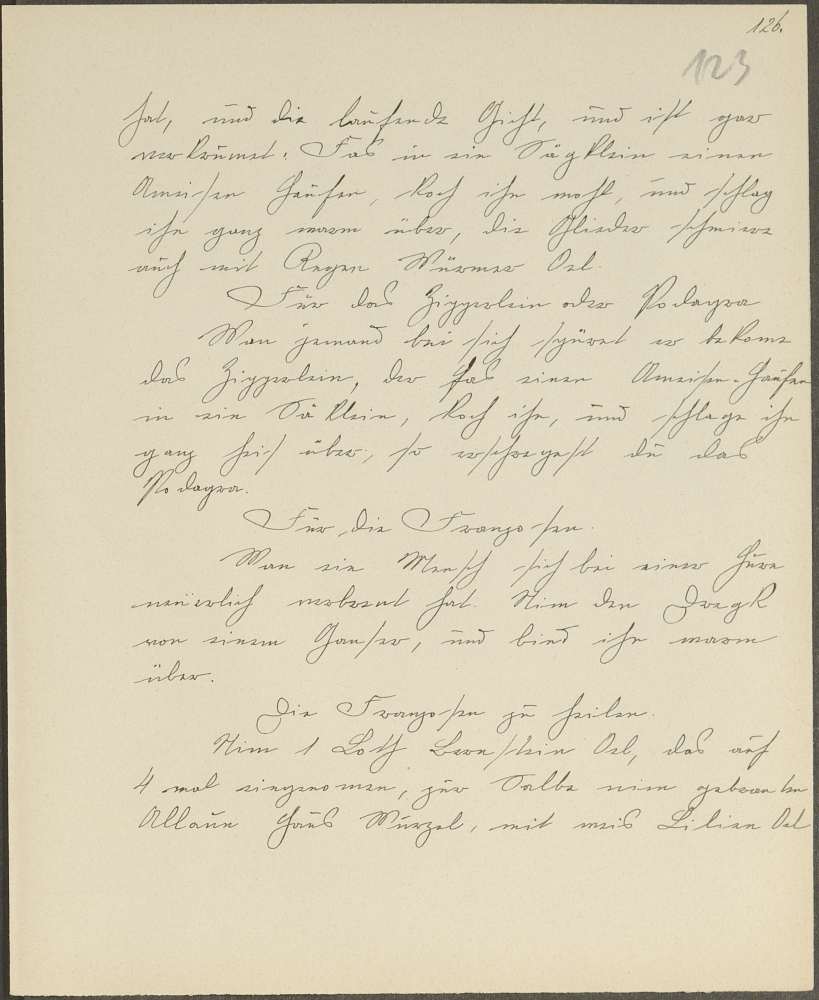 126.
123
hat, und die laufende Gicht, und ist gar
verkrümet. Fas in ein Sägklein einen
Ameissen Haufen, koch ihn wohl, und schlag
ihn ganz warm über, die Glieder schmiere
auch mit Regen Würmer Oel.
Für das Zipperlein oder Podagra
Wan jemand bei sich spüret er bekome
das Zipperlein, der fas einen Ameisen-Haufen
in ein Säklein, koch ihn, und schlage ihn
ganz heis über, so erschregest du das
Podagra.
Für die Franzosen.
Wan ein Mensch sich bei einer Hure
neüerlich verbrent hat. Nim den Dregk
von einem Ganser, und bind ihn warm
über.
Die Franzosen zu heilen.
Nim 1 Loth Bernstein Oel, das auf
4 mal eingenomen, zur Salbe nim gebranten
Allaun Haus Wurzel, mit weis Lilien Oel